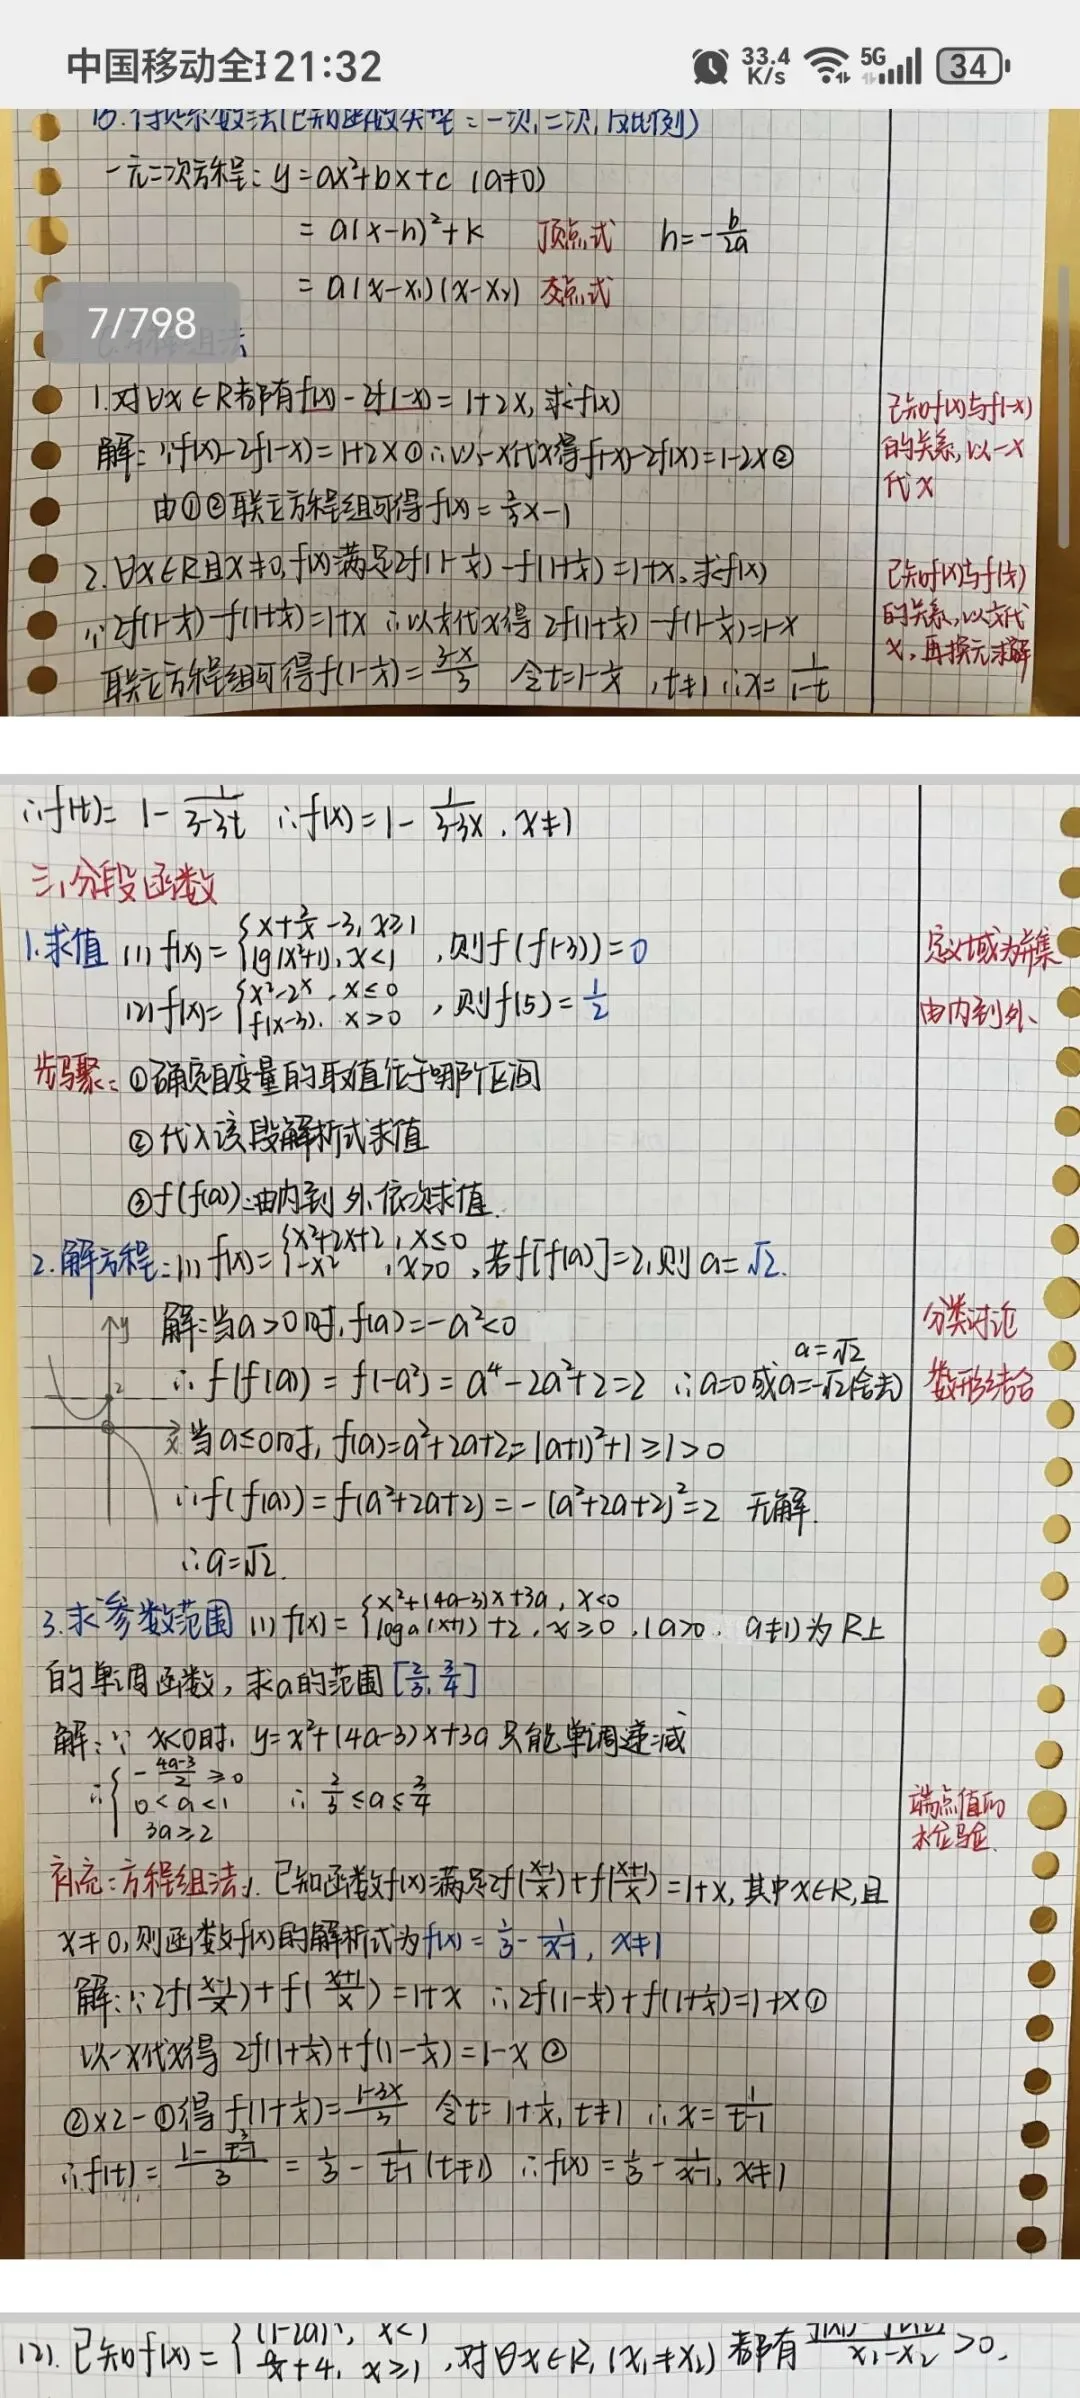 中国移动全 21:32 33.4 K/s 5G 34
b.待定系数法(已知函数类型:一次,二次,反比例)
一元二次方程: y=ax²+bx+c (a≠0)
=a(x-h)²+k 顶点式 h=-b/2a
=a(x-x₁)(x-x₂) 交点式
7/798
1.对∀x∈R都有f(x)-2f(-x)=1+2x,求f(x)
解:∵f(x)-2f(-x)=1+2x① ∴以-x代x得f(-x)-2f(x)=1-2x②
由①②联立方程组可得f(x)=⅔x-1
已知f(x)与f(-x)
的关系,以-x
代x
2.∀x∈R且x≠0,f(x)满足2f(1-1/x)-f(1+1/x)=1+x,求f(x)
∵2f(1-1/x)-f(1+1/x)=1+x ∴以 代x得 2f(1+1/x)-f(1-1/x)=1-x
联立方程组可得f(1-1/x)=(3+x)/3 令t=1-1/x,t≠1 ∴x=1/(1-t)
的关系,以 代
x,再换元求解
∴f(t)=1-1/(3-3t) ∴f(x)=1-1/(3-3x),x≠1
三、分段函数
1.求值 (1) f(x)={x+2/x-3,x≥1
lg(x²+1),x<1 ,则f(f(-3))=0
定义域为并集
(2)f(x)={x²-2ˣ,x≤0
f(x-3),x>0 ,则f(5)=1/2
由内到外、
步骤:①确定自变量的取值位于哪个区间
②代入该段解析式求值
③f(f(a)):由内到外依次求值.
2.解方程:(1) f(x)={x²+2x+2,x≤0
-x²,x>0 ,若f[f(a)]=2,则a=√2.
解:当a>0时,f(a)=-a²<0
∴f(f(a))=f(-a²)=a⁴-2a²+2=2 ∴a=0或a=-√2(舍去) a=√2
分类讨论
数形结合
y
2
x
当a≤0时,f(a)=a²+2a+2=(a+1)²+1≥1>0
∴f(f(a))=f(a²+2a+2)=-(a²+2a+2)²=2 无解.
∴a=√2.
3.求参数范围 (1) f(x)={x²+(4a-3)x+3a,x<0
logₐ(x+1)+2,x≥0 ,(a>0,a≠1)为R上
的单调函数,求a的范围[2/3,3/4]
解:∵x<0时,y=x²+(4a-3)x+3a只能单调递减
∴{-(4a-3)/2≥0
0<a<1 ∴2/3≤a≤3/4
3a≥2
端点值的
补充:方程组法:1.已知函数f(x)满足2f((x-1)/x)+f((x+1)/x)=1+x,其中x∈R,且
x≠0,则函数f(x)的解析式为f(x)=1/3-1/(x-1),x≠1
解:∵2f((x-1)/x)+f((x+1)/x)=1+x ∴2f(1-1/x)+f(1+1/x)=1+x①
以-x代x得 2f(1+1/x)+f(1-1/x)=1-x②
②×2-①得f(1+1/x)=(1-3x)/3 令t=1+1/x,t≠1 ∴x=1/(t-1)
∴f(t)=(1-3/(t-1))/3=1/3-1/(t-1)(t≠1) ∴f(x)=1/3-1/(x-1),x≠1
(2).已知f(x)={(1-2a)ˣ,x<1
a/x+4,x≥1 ,对∀x∈R,(x₁≠x₂)都有(f(x₁)-f(x₂))/(x₁-x₂)>0,